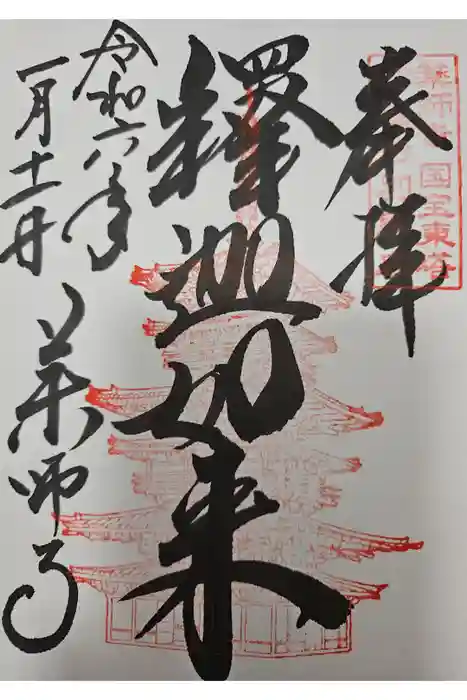 国宝東塔
奉拝
釋迦如来
令和六年
一月十一日
薬師寺